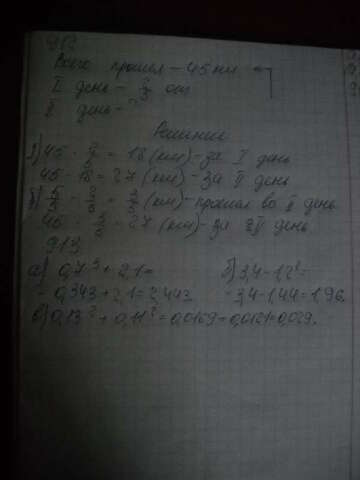 912
Всего прошел - 45 км
I день - 2/5 от
II день - ?
Решение
1) 45 · 2/5 = 18 (км) - за I день
45 - 18 = 27 (км) - за II день
5/5 - 2/5 = 3/5 (км) - прошел во II день
45 · 3/5 - 27 (км) - за II день
913
а) 0,7³ + 2,1 =
0,343 + 2,1 = 2,443.
б) 3,4 - 1,2² =
3,4 - 1,44 = 1,96.
в) 0,13² + 0,11² = 0,0169 + 0,0121 = 0,029.